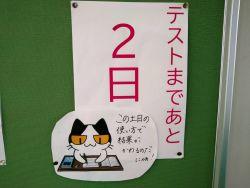 テストまであと
2日
この土日の
使い方で
結果が
かわるのだ